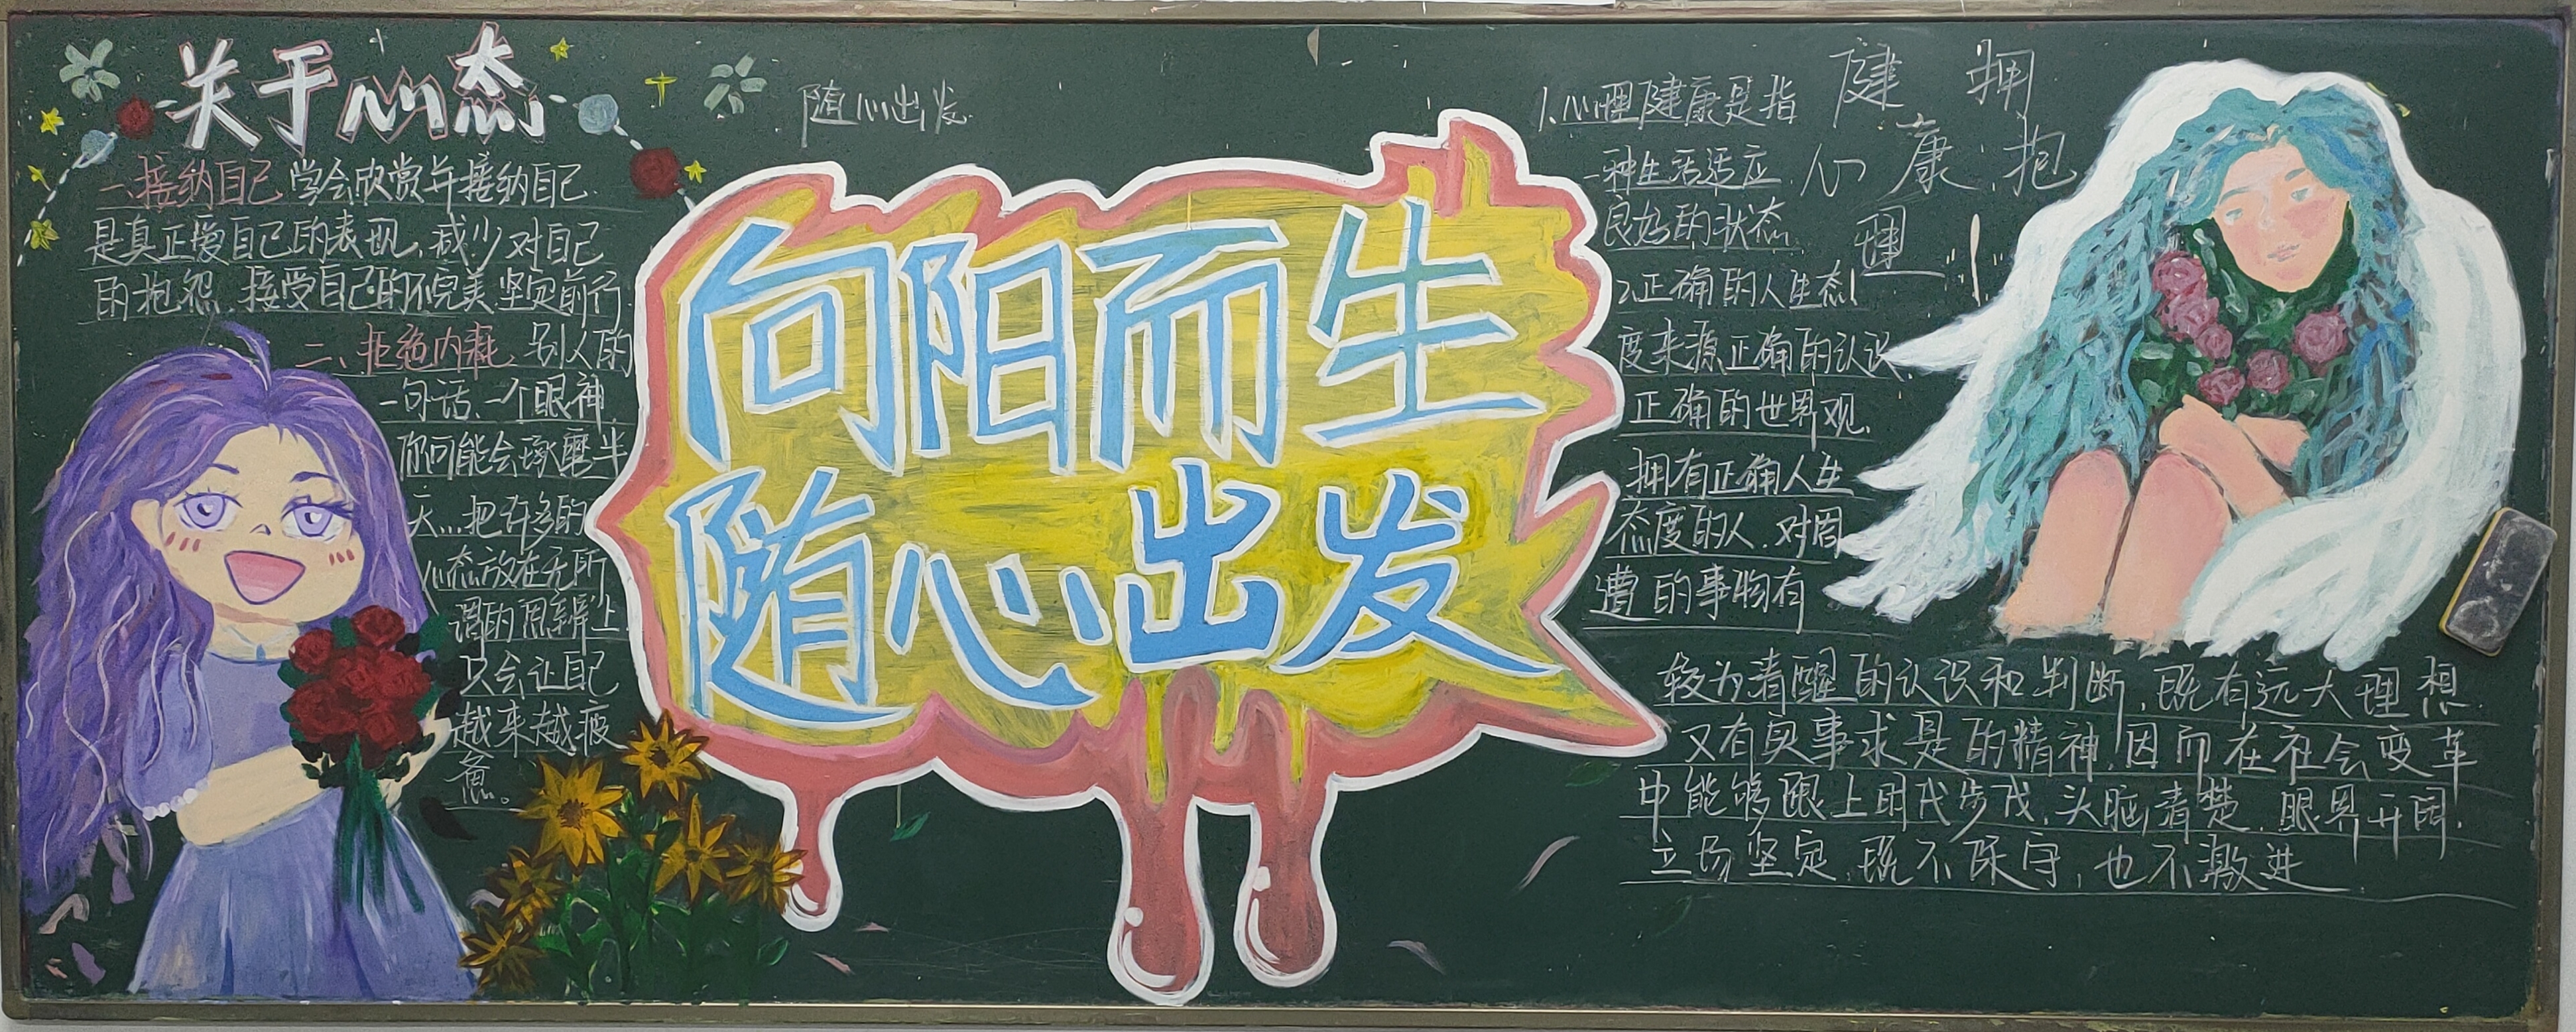 关于心态
一.接纳自己 学会欣赏并接纳自己.
是真正爱自己的表现,减少对自己
的抱怨,接受自己的不完美坚定前行.
二、拒绝内耗, 别人的
一句话、一个眼神,
你可能会琢磨半
天....把许多的
心态放在无所
谓的思辨上
只会让自己
越来越疲
惫。
随心出发.
向阳而生
随心出发
拥抱
健康
心理
1.心理健康是指
一种生活适应
良好的状态.
2.正确的人生态
度来源正确的认识.
正确的世界观.
拥有正确人生
态度的人.对周
遭的事物有
较为清醒的认识和判断,既有远大理想.
又有实事求是的精神,因而在社会变革
中能够跟上时代步伐,头脑清楚.眼界开阔.
立场坚定,既不保守,也不激进.